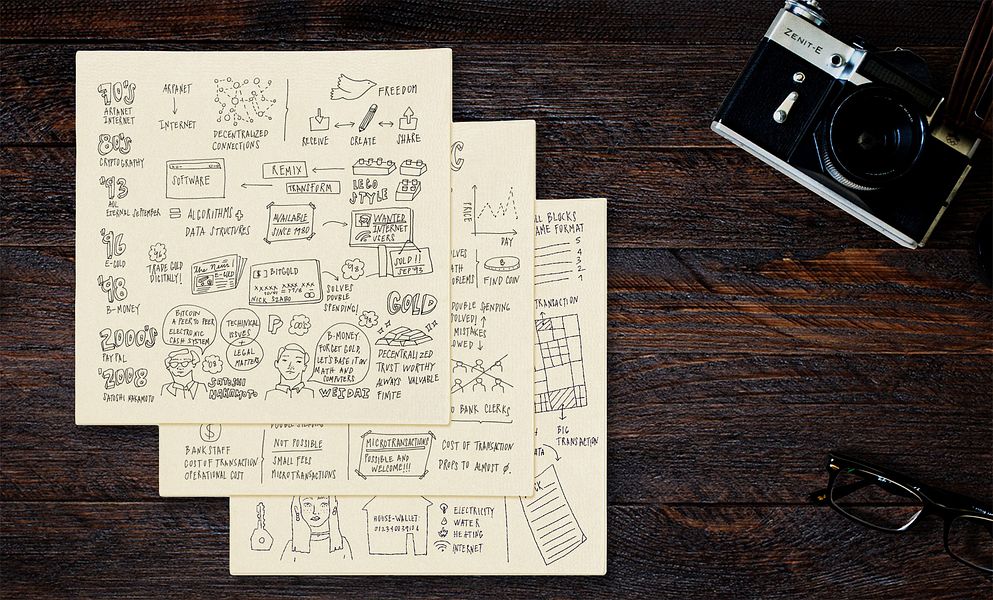 70'S
ARPANET
INTERNET
ARPANET
INTERNET
DECENTRALIZED
CONNECTIONS
FREEDOM
RECEIVE
CREATE
SHARE
80'S
CRYPTOGRAPHY
SOFTWARE
REMIX
TRANSFORM
LEGO
STYLE
'93
AOL
ETERNAL SEPTEMBER
= ALGORITHMS +
DATA STRUCTURES
AVAILABLE
SINCE 1980
WANTED
INTERNET
USERS
SOLD!!
SEP '93
'96
E-GOLD
'96
TRADE GOLD
DIGITALLY!
The News
E-GOLD
BITGOLD
NICK SZABO
'98
SOLVES
DOUBLE
SPENDING!
'98
B-MONEY
GOLD
2000'S
PAYPAL
BITCOIN
A PEER TO PEER
ELECTRONIC
CASH SYSTEM
TECHNICAL
ISSUES
+
LEGAL
MATTERS
P
00'S
'98
B-MONEY
FORGET GOLD,
LET'S BASE IT ON
MATH AND
COMPUTERS
DECENTRALIZED
TRUST WORTHY
ALWAYS VALUABLE
FINITE
'2008
SATOSHI NAKAMOTO
'08
SATOSHI
NAKAMOTO
WEI DAI
C
PRICE
DAY
OLVES
ATH
OBLEMS
B
FIND COIN
DOUBLE SPENDING
SOLVED!
MISTAKES
OWED
O BANK CLERKS
BANK STAFF
COST OF TRANSACTION
OPERATIONAL COST
DOUBLE SPENDING
NOT POSSIBLE
SMALL FEES
MICROTRANSACTIONS
MICROTRANSACTIONS
POSSIBLE AND
WELCOME!!!
COST OF TRANSACTION
DROPS TO ALMOST 0.
LL BLOCKS
AME FORMAT
5
4
3
2
1
TRANSACTION
BIG
TRANSACTION
DATA
CK
HOUSE-WALLET:
ELECTRICITY
WATER
HEATING
INTERNET
ZENIT-E